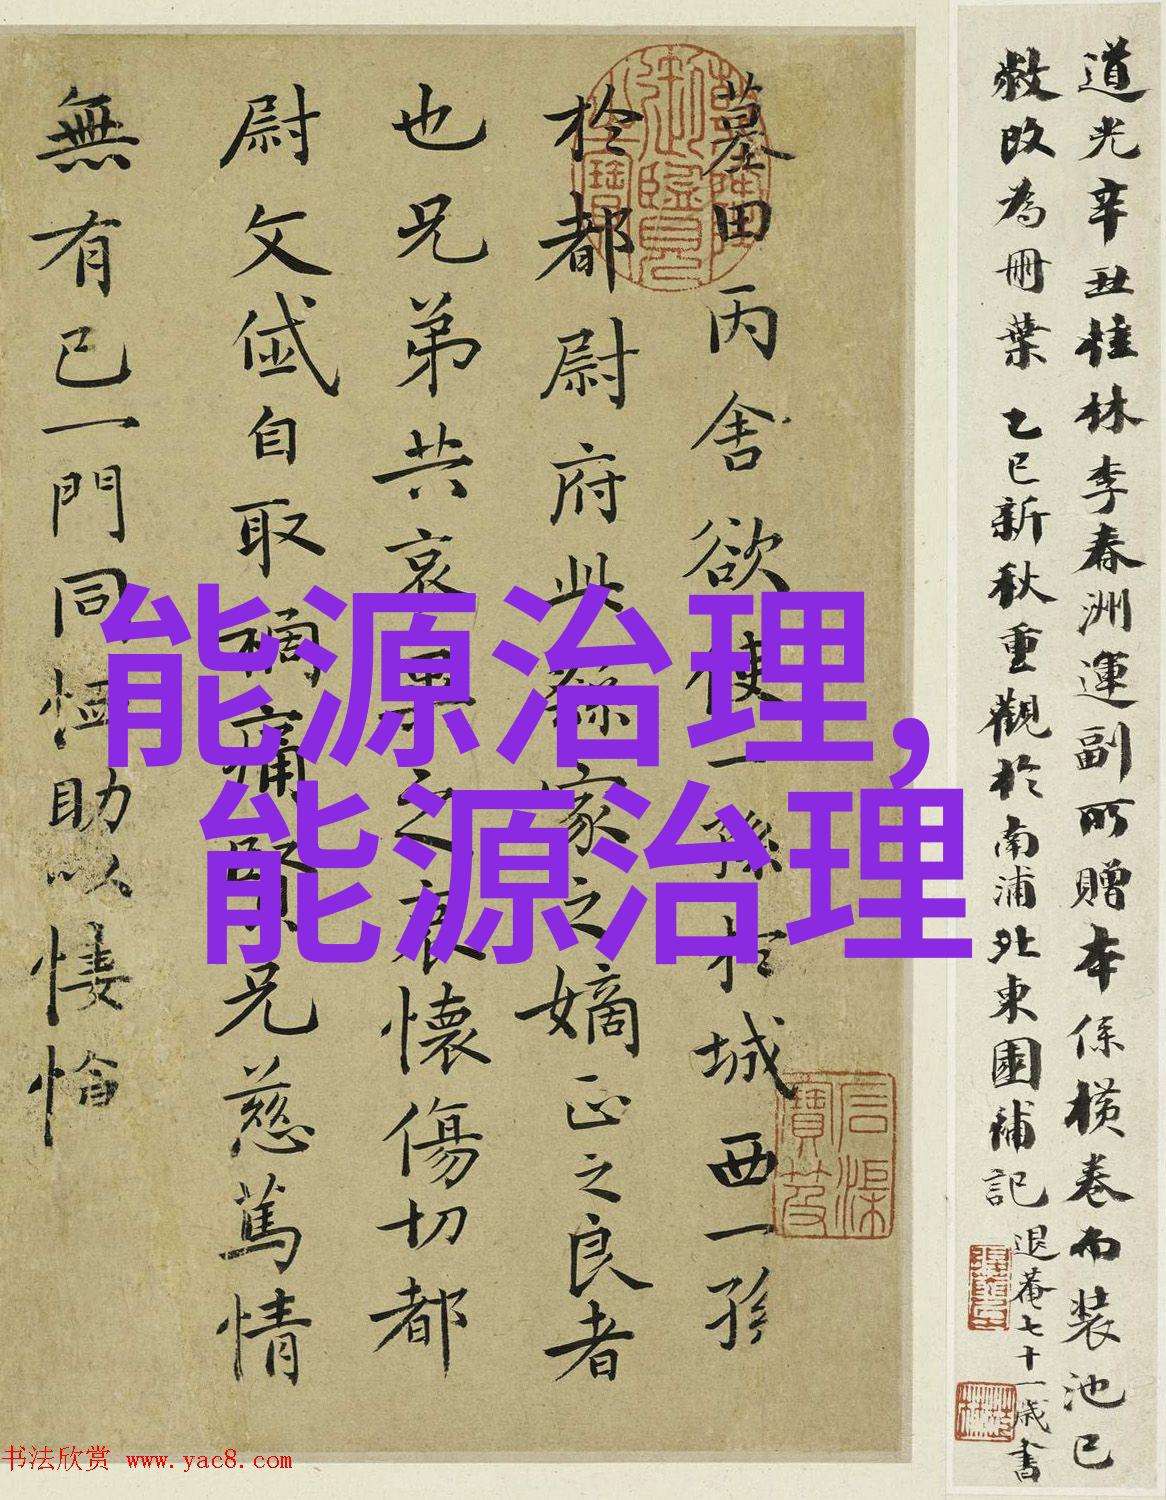 道光辛丑桂林李春洲運副所贈本係橫卷而裝池已
敝改為冊葉 乙巳新秋重觀於南浦北東園補記 退菴七十一歲書
墓田丙舍欲使一孫於城西一孫
於都尉府此繇家之嫡正之良者
也兄弟共哀異之哀懷傷切都
尉文岱自取禍痛賢兄慈篤情
無有已一門同恤助以悽愴
能源治理,
能源治理
书法欣赏 www.yac8.com